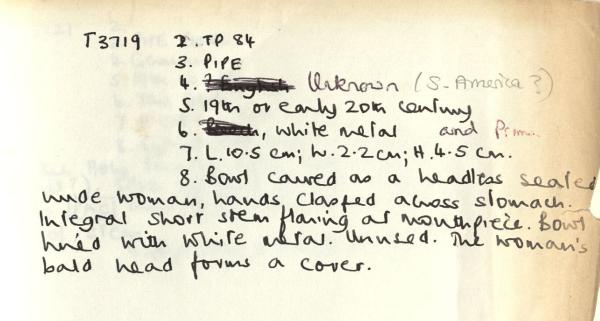 T3719 2. TP 84
3. PIPE
4. Unknown (S. America?)
5. 19th or early 20th century
6. , white metal and
7. L. 10.5 cm; W. 2.2 cm; H. 4.5 cm.
8. Bowl carved as a headless seated
nude woman, hands clasped across stomach.
Integral short stem flaring at mouthpiece. Bowl
lined with white metal. Unused. The woman's
bald head forms a cover.